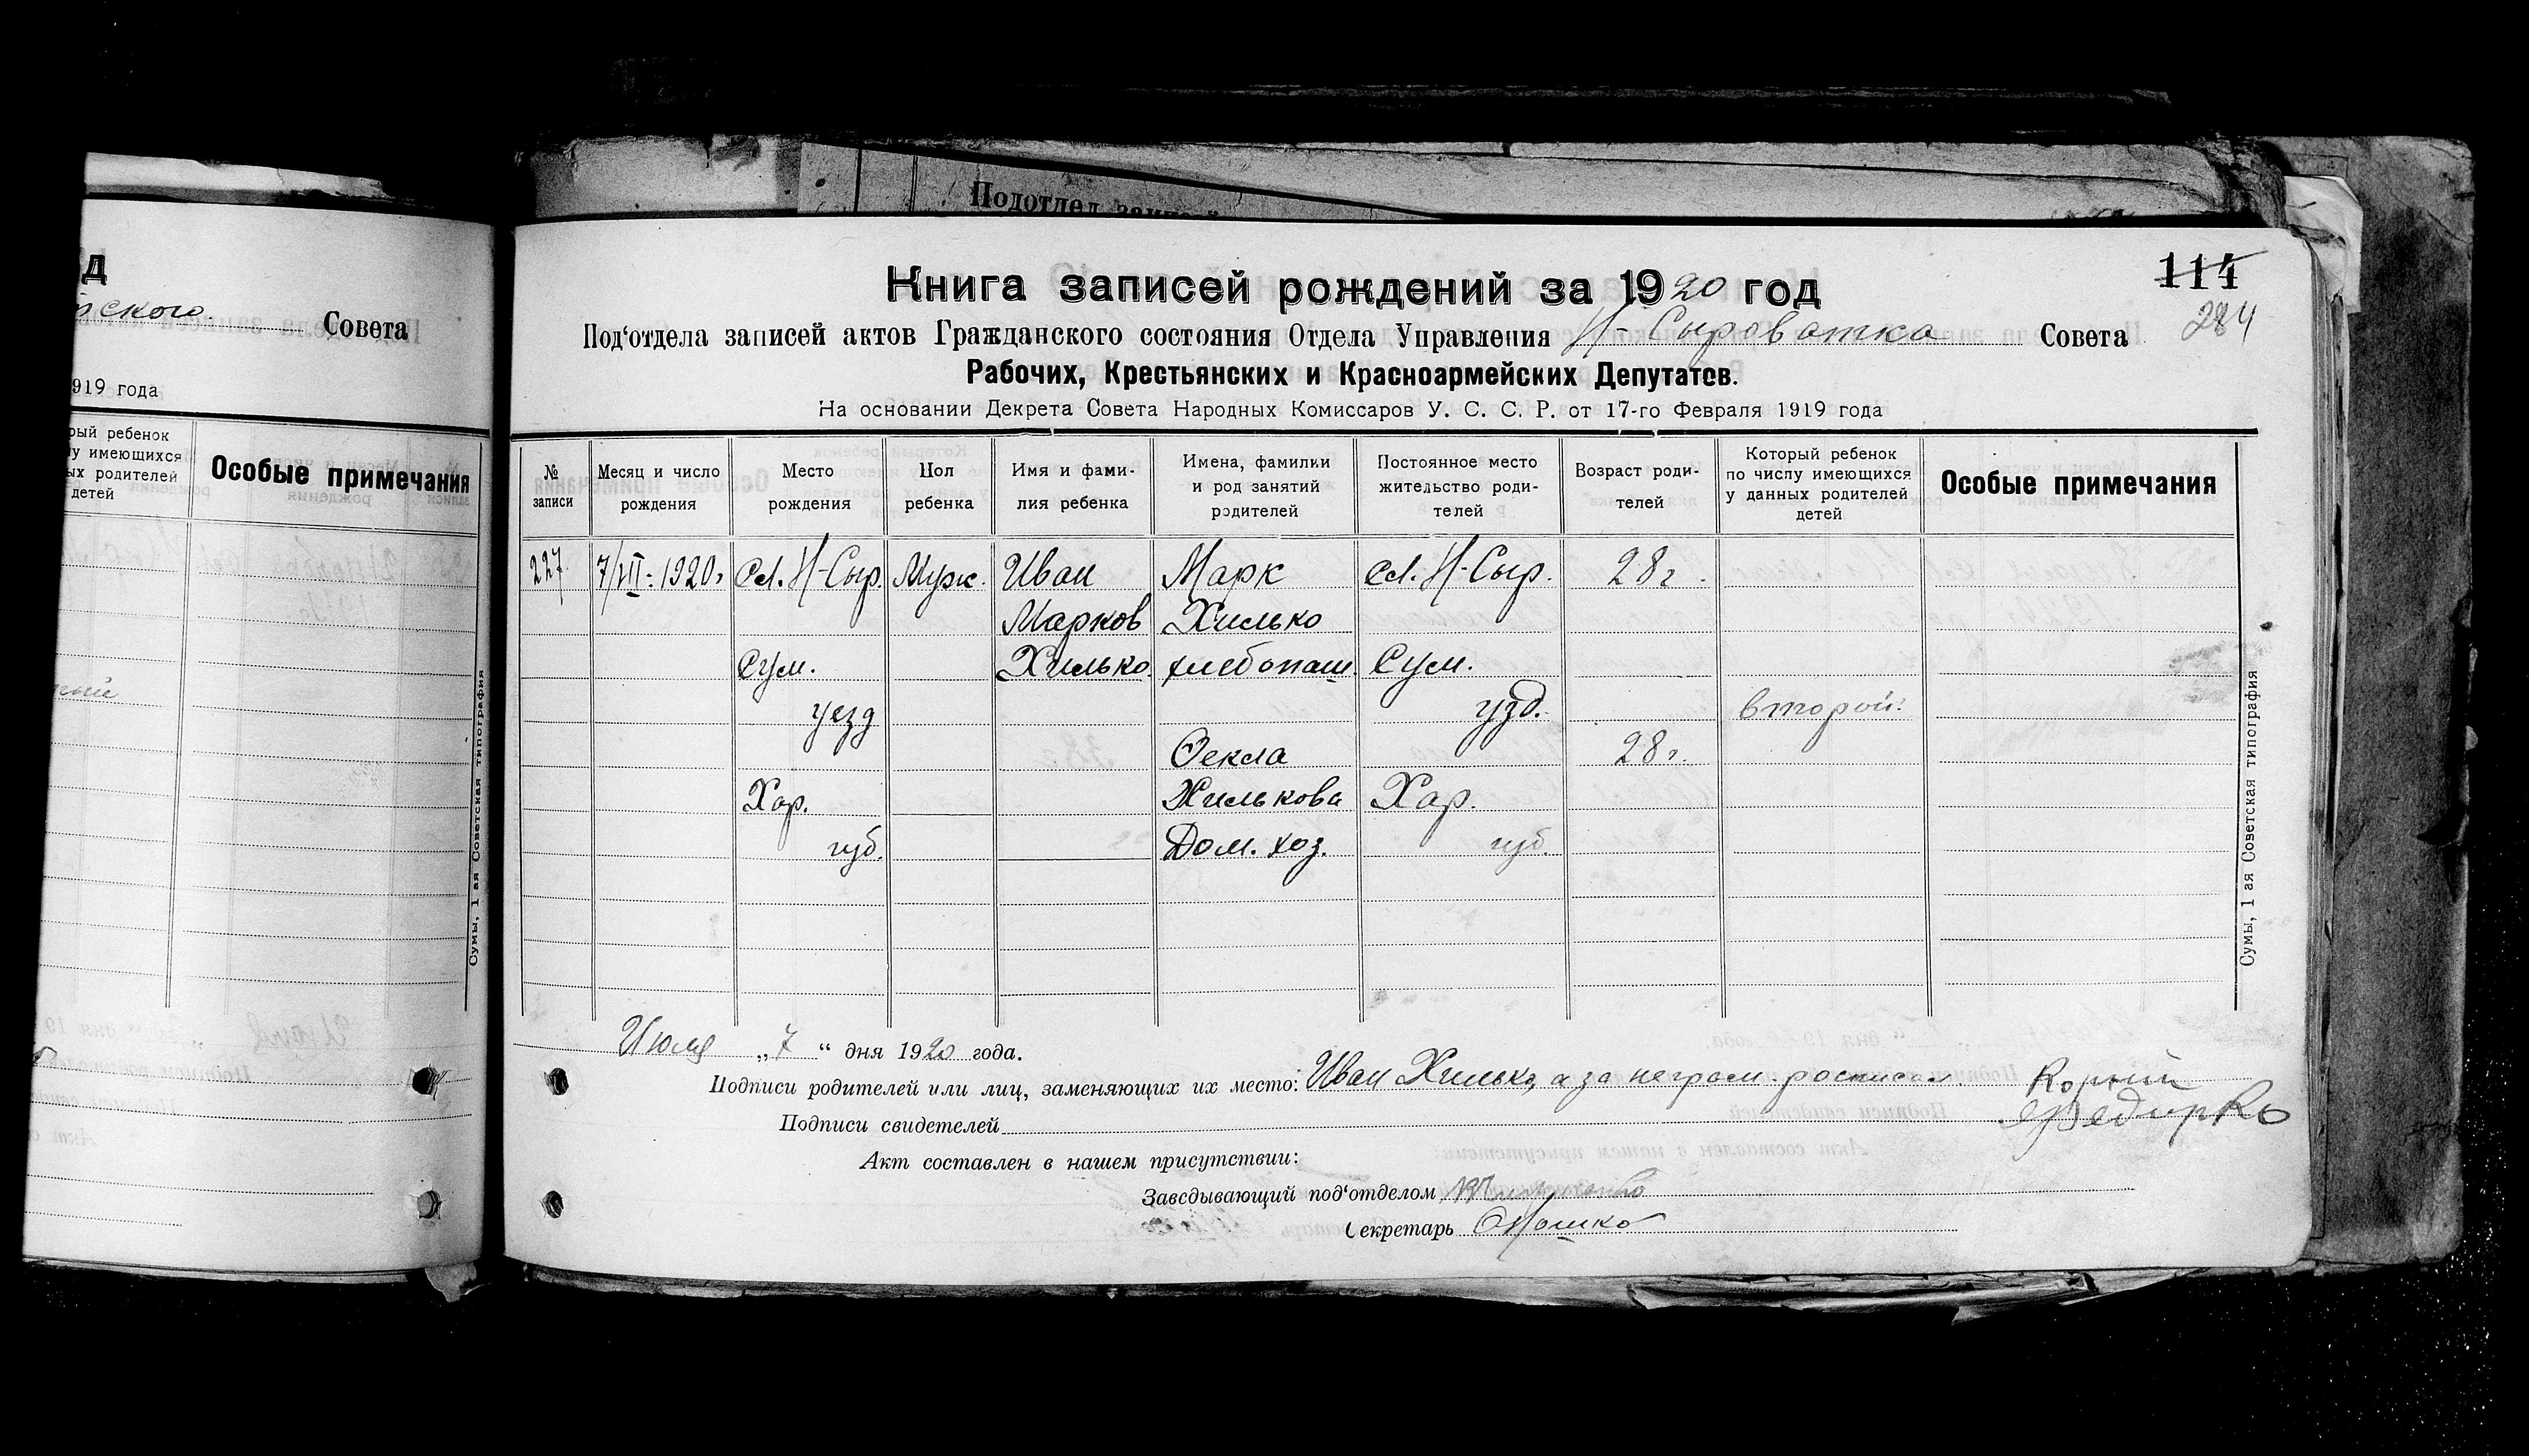 д
ского. Совета
919 года
рый ребенок
у имеющихся
ых родителей
детей
Особые примечания
Сумы, 1 ая Советская типография
Подотдел
114
284
Книга записей рождений за 1920 год
Под‘отдела записей актов Гражданского состояния Отдела Управления Н-Сыроватка Совета
Рабочих, Крестьянских и Красноармейских Депутатов.
На основании Декрета Совета Народных Комиссаров У. С. С. Р. от 17-го Февраля 1919 года
№ записи
Месяц и число рождения
Место рождения
Пол ребенка
Имя и фами-
лия ребенка
Имена, фамилии
и род занятий
родителей
Постоянное место
жительство роди-
телей
Возраст роди-
телей
Который ребенок
по числу имеющихся
у данных родителей
детей
Особые примечания
227 7/VII: 1920г Сл. Н-Сыр. Муж. Иван Марк Сл. Н-Сыр. 28г.
Марков Хилько
Сум. Хилько. хлебопаш. Сум.
уезд узд. второй.
Ѳекла 28г.
Хар. Хилькова Хар.
губ. Дом. хоз. губ.
Сумы, 1 ая Советская типография
Июля „7“ дня 1920 года.
Подписи родителей или лиц, заменяющих их место: Иван Хилько, а за неграм. росписал
Подписи свидетелей
Федирко
Акт составлен в нашем присутствии:
Заведывающий под‘отделом
Секретарь